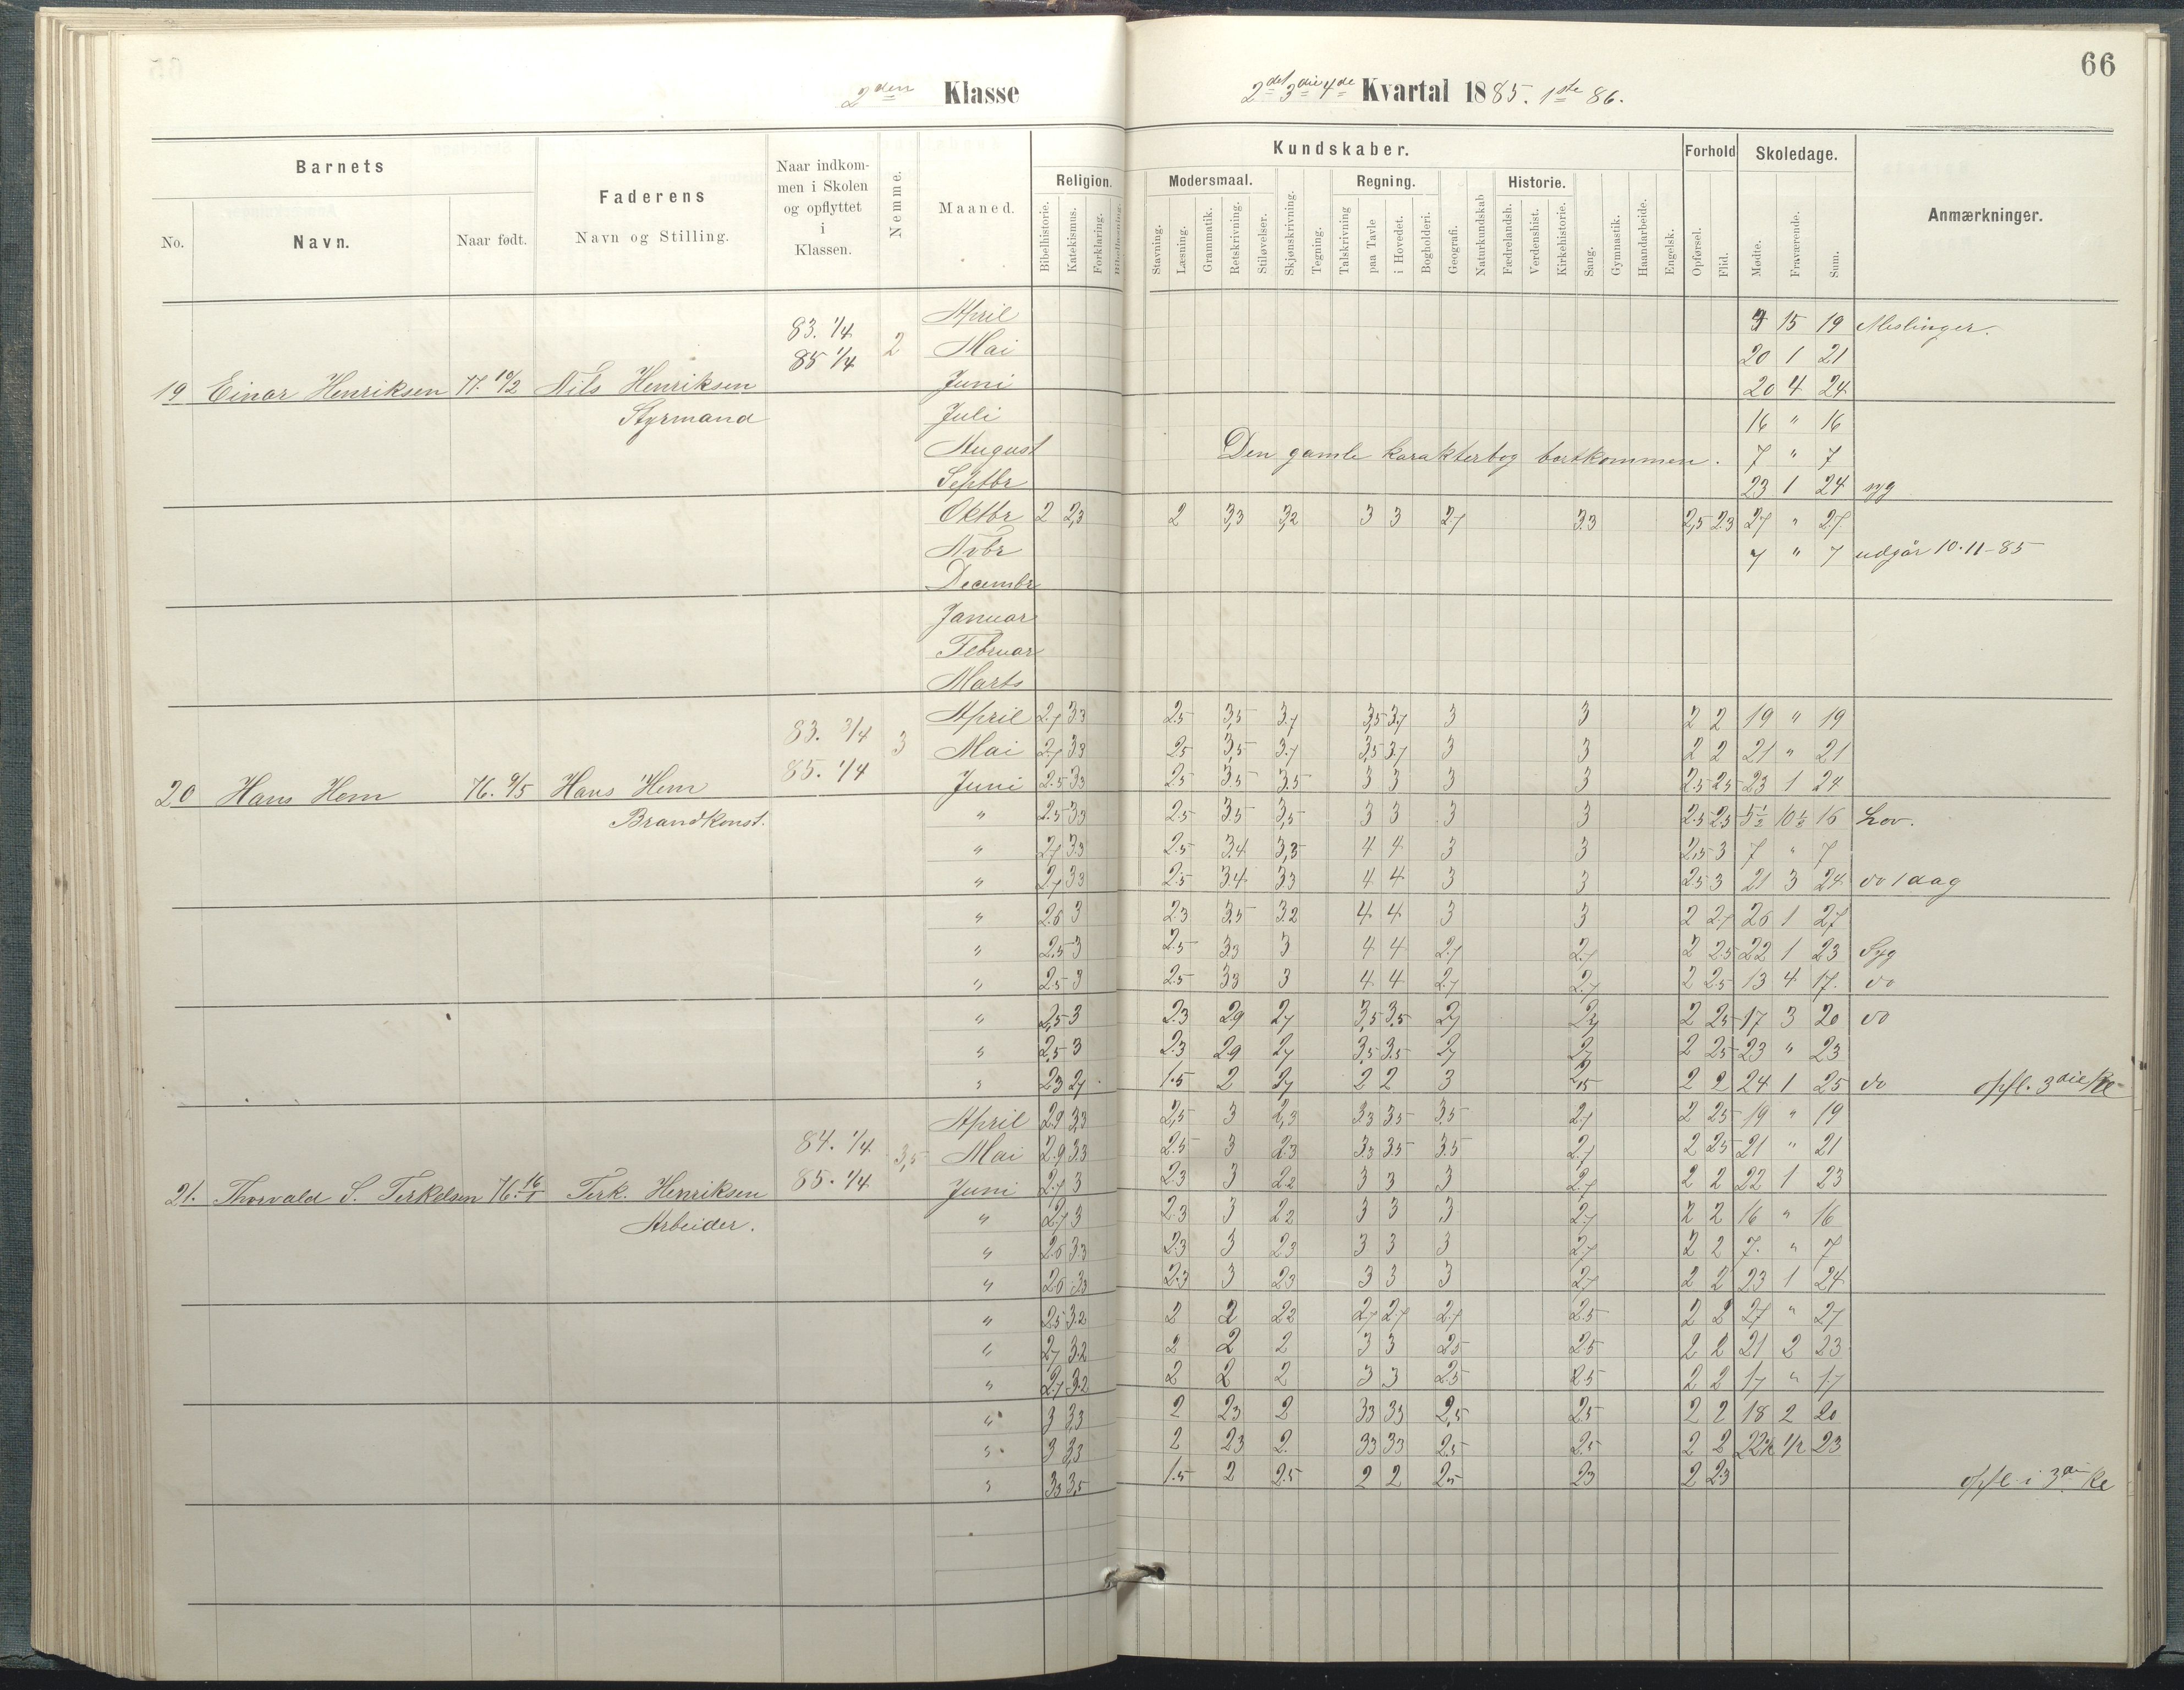 66
2den Klasse
2det 3die 4de Kvartal 1885. 1ste 86.
Barnets
No.
Navn.
Naar født.
Faderens
Navn og Stilling.
Naar indkom-
men i Skolen
og opflyttet
i
Klassen.
Nemme.
Maaned.
Kundskaber.
Religion.
Bibelhistorie.
Katekismus.
Forklaring.
Bibellæsning.
Modersmaal.
Stavning.
Læsning.
Grammatik.
Retskrivning.
Stiløvelser.
Skjønskrivning.
Tegning.
Regning.
Talskrivning
paa Tavle
i Hovedet.
Bogholderi.
Geografi.
Naturkundskab
Historie.
Fædrelandsh.
Verdenshist.
Kirkehistorie.
Sang.
Gymnastik.
Haandarbeide.
Engelsk.
Forhold
Opførsel.
Flid.
Skoledage.
Mødte.
Fraværende.
Sum.
Anmærkninger.
83. 1/4 2 April 4 15 19 Meslinger.
85 1/4 Mai 20 1 21
19 Einar Henriksen 77. 10/2 Nils Henriksen Juni 20 4 24
Styrmand Juli 16 " 16
August Den gamle karakterbog bortkommen. 7 " 7
Septbr 23 1 24 syg
Oktbr 2 2,3 2 3,3 3,2 3 3 2.7 3.3 2,5 2.3 27 " 27
Nvbr 7 " 7 udgår 10-11-85
Decembr
Januar
Februar
Marts
83. 3/4 3 April 2.7 3.3 2.5 3,5 3.7 3,5 3.7 3 3 2 2 19 " 19
85. 1/4 Mai 2.7 3.3 2.5 3,5 3.7 3,5 3.7 3 3 2 2 21 " 21
20 Hans Hem 76. 9/5 Hans Hem Juni 2.5 3.3 2.5 3.5 3.5 3 3 3 3 2.5 2.5 23 1 24
Brandkonst. " 2.5 3.3 2.5 3.5 3,5 3 3 3 3 2.5 2.5 5 1/2 10 1/2 16 Lov.
" 2.7 3.3 2.5 3.4 3,3 4 4 3 3 2,5 3 7 " 7
" 2.7 3.3 2.5 3.4 3.3 4 4 3 3 2.5 3 21 3 24 do 1 dag
" 2.6 3 2.3 3.5 3.2 4 4 3 3 2 2.7 26 1 27
" 2.5 3 2.5 3.3 3 4 4 2.7 2.7 2 2.5 22 1 23 Syg
" 2.5 3 2.5 3.3 3 4 4 2.7 2.7 2 2.5 13 4 17. do
" 2,5 3 2.3 2.9 2.7 3,5 3.5 2.7 2.7 2 2.5 17 3 20 do
" 2,5 3 2.3 2.9 2.7 3.5 3.5 2.7 2.7 2 2.5 23 " 23
" 2.3 2.7 1.5 2 2.7 2 2 3 2,5 2 2 24 1 25 do opfl. 3die Kl
April 2.9 3,3 2,5 3 2,3 3.3 3.5 3.5 2.7 2 2.5 19 " 19
84. 1/4 3,5 Mai 2.9 3.3 2.5 3 2.3 3.3 3.5 3.5 2.7 2 2.5 21 " 21
21. Thorvald S. Terkelsen 76. 16/1 Terk. Henriksen 85. 1/4 Juni 2.7 3 2.3 3 2.2 3 3 3 2.7 2 2 22 1 23
Arbeider. " 2.7 3 2.3 3 2.2 3 3 3 2.7 2 2 16 " 16
" 2.6 3.3 2.3 3 2.3 3 3 3 2.7 2 2 7. " 7
" 2.6 3.3 2.3 3 2.3 3 3 3 2.7 2 2 23 1 24
" 2.5 3.2 2 2 2.2 2.7 2.7 2.7 2.5 2 2 27 " 27
" 2.7 3.2 2 2 2 3 3 2.5 2.5 2 2 21 2 23
" 2.7 3.2 2 2 2 3 3 2.5 2.5 2 2 17 " 17
" 3 3,3 2 2.3 2 3.3 3.3 2,5 2.5 2 2 18 2 20
" 3 3,3 2 2.3 2. 3.3 3.3 2.5 2.5 2 2 22 1/2 1/2 23
" 3.3 3,5 1.5 2 2.5 2 2 2.5 2.3 2 2.3 opfl. i 3die Kl